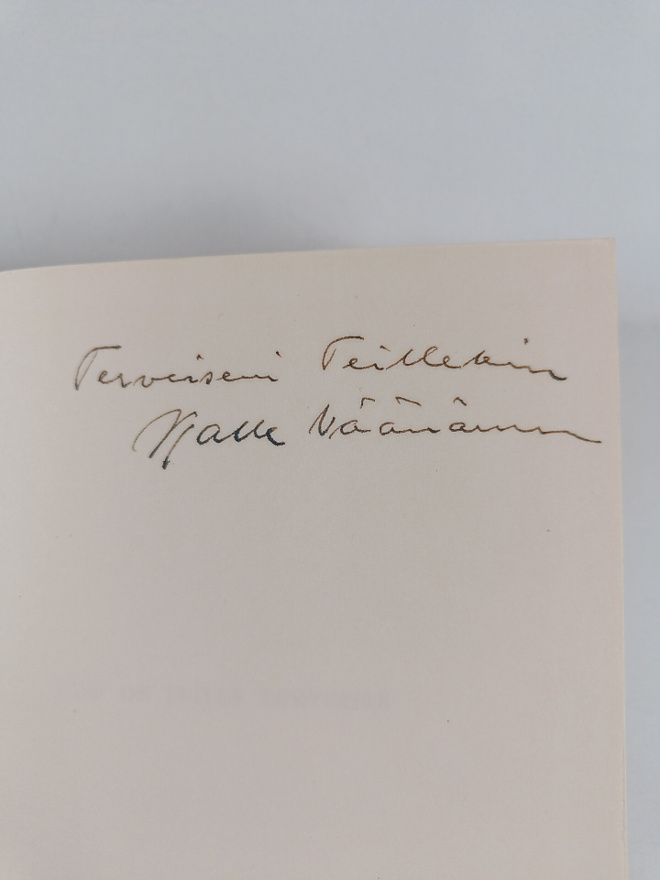 Terveiseni Teillekin
Kalle Väänänen